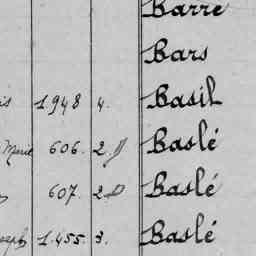 Barre
Bars
is 1.948 4. Basil
Marie 606. 2. Baslé
607. 2 Baslé
oseph 1.455. 3. Baslé